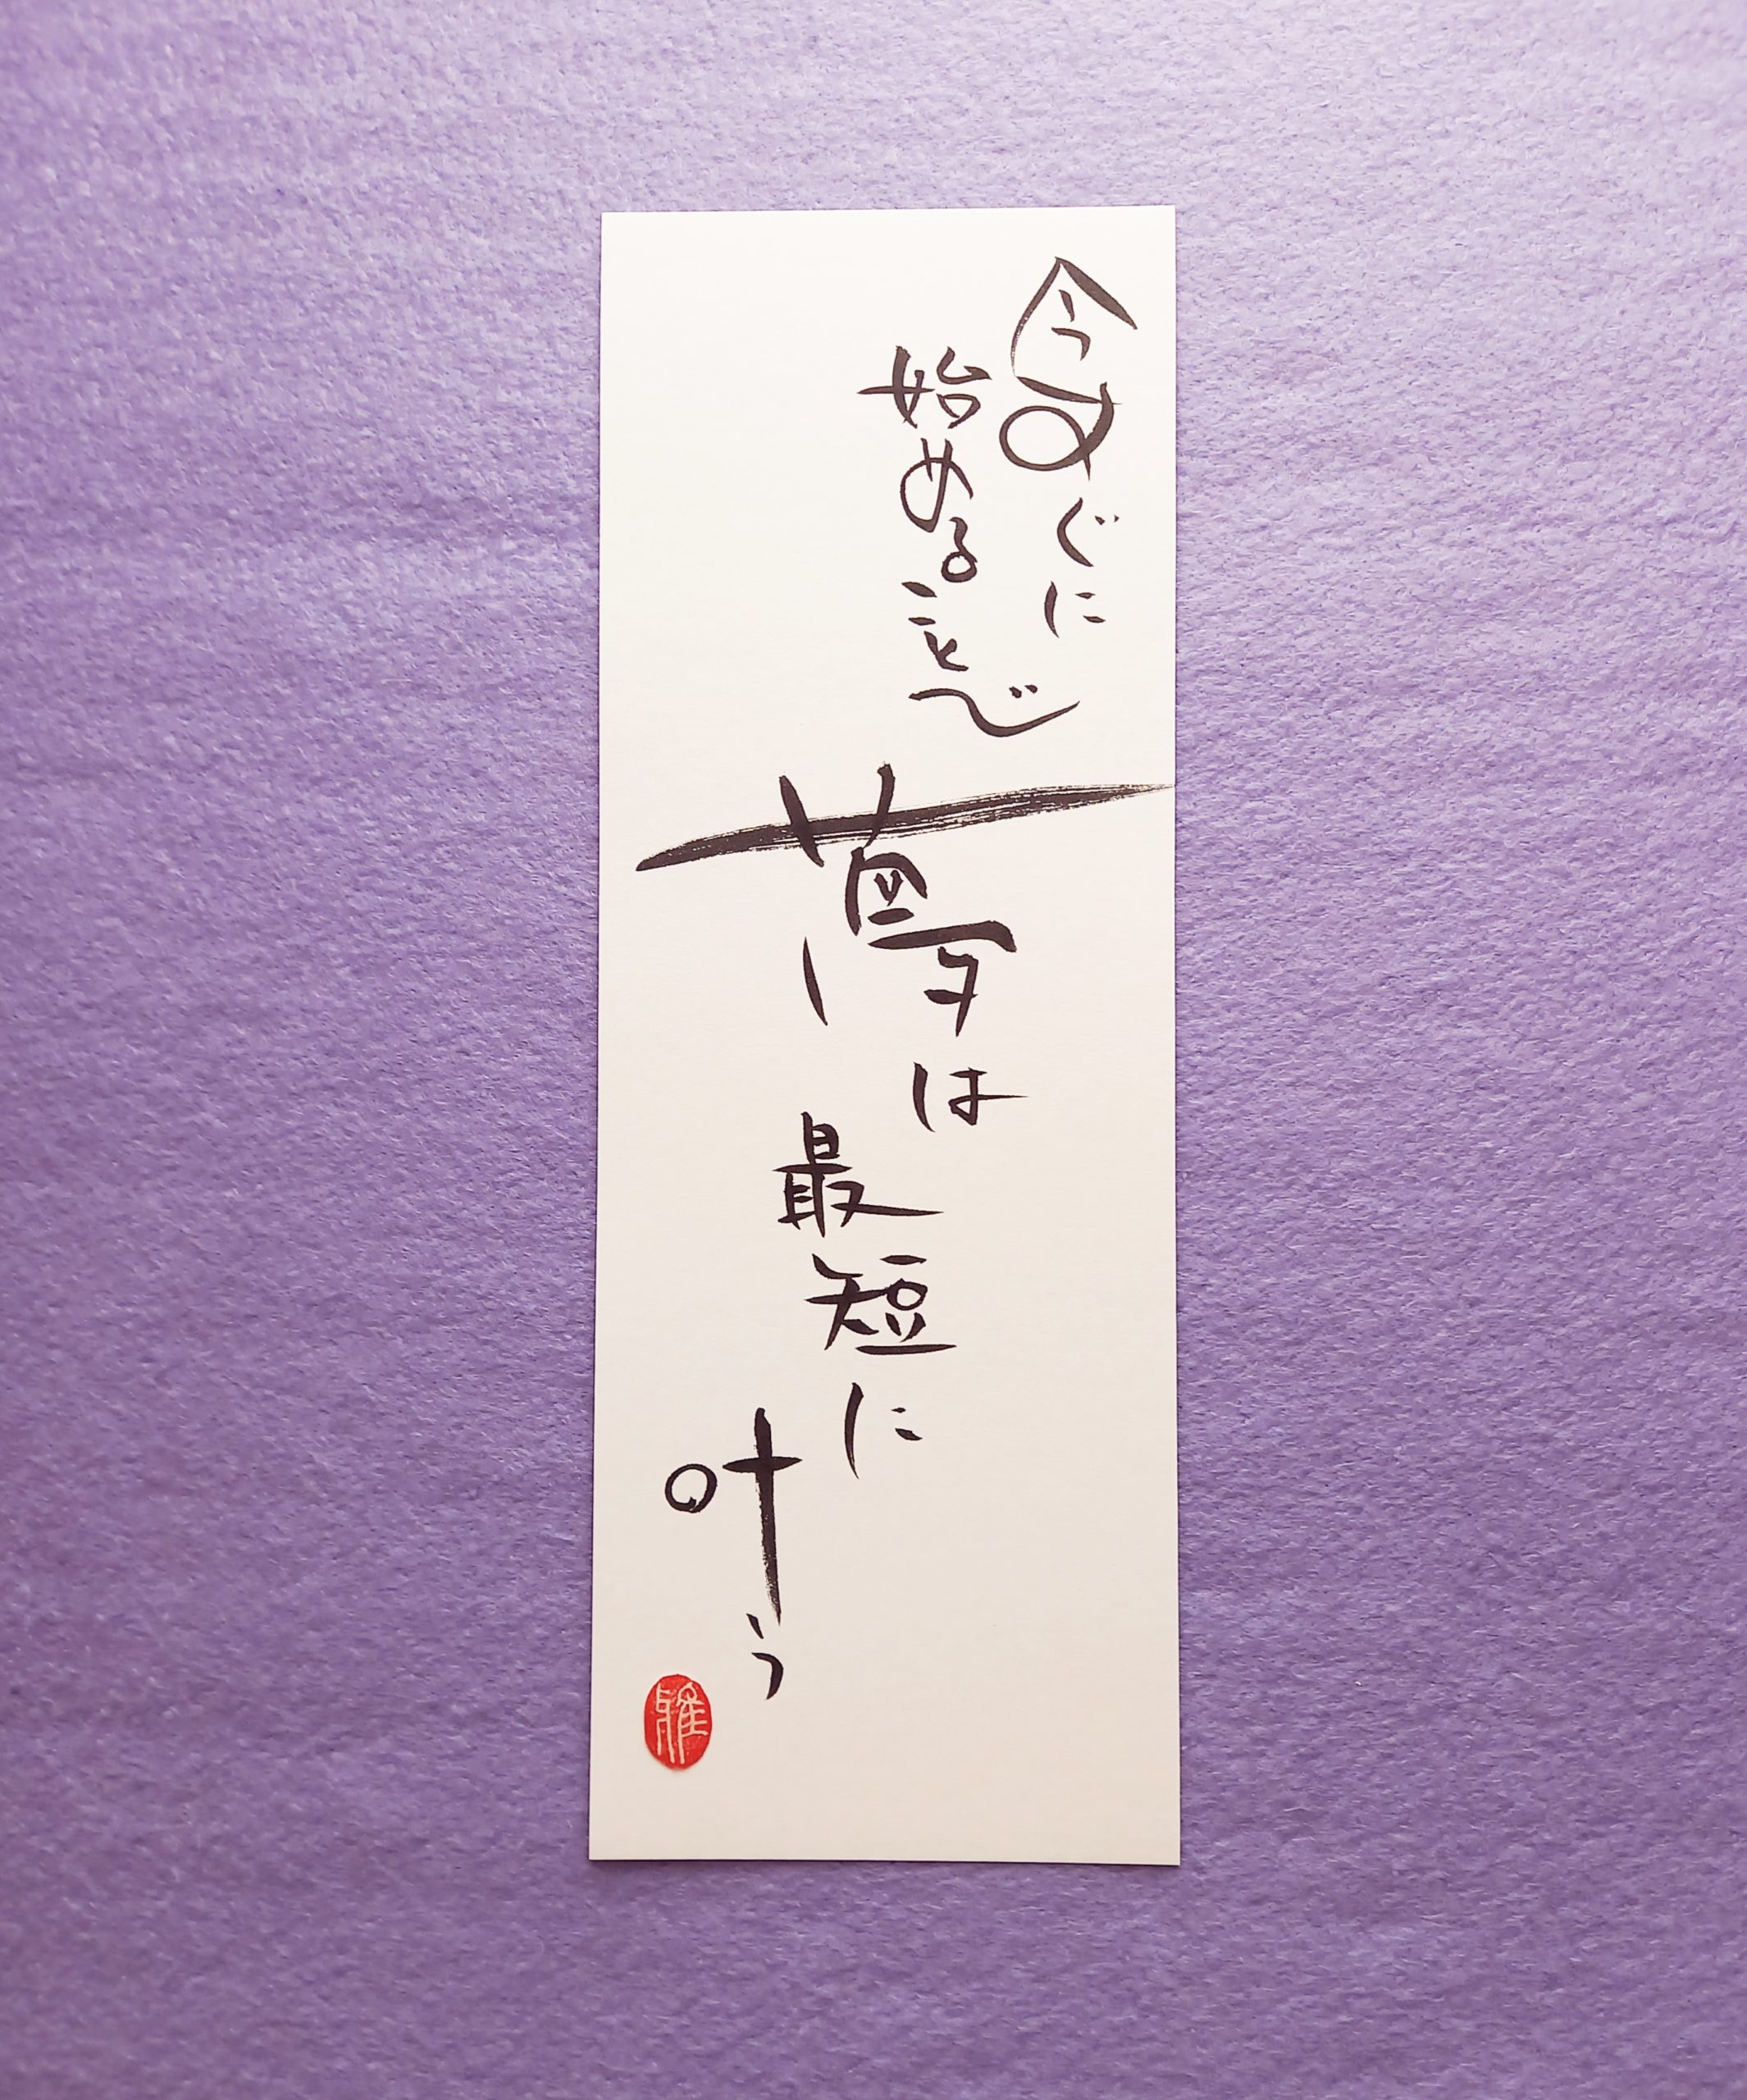 今すぐに
始めることで
夢は
最短に
叶う
雅